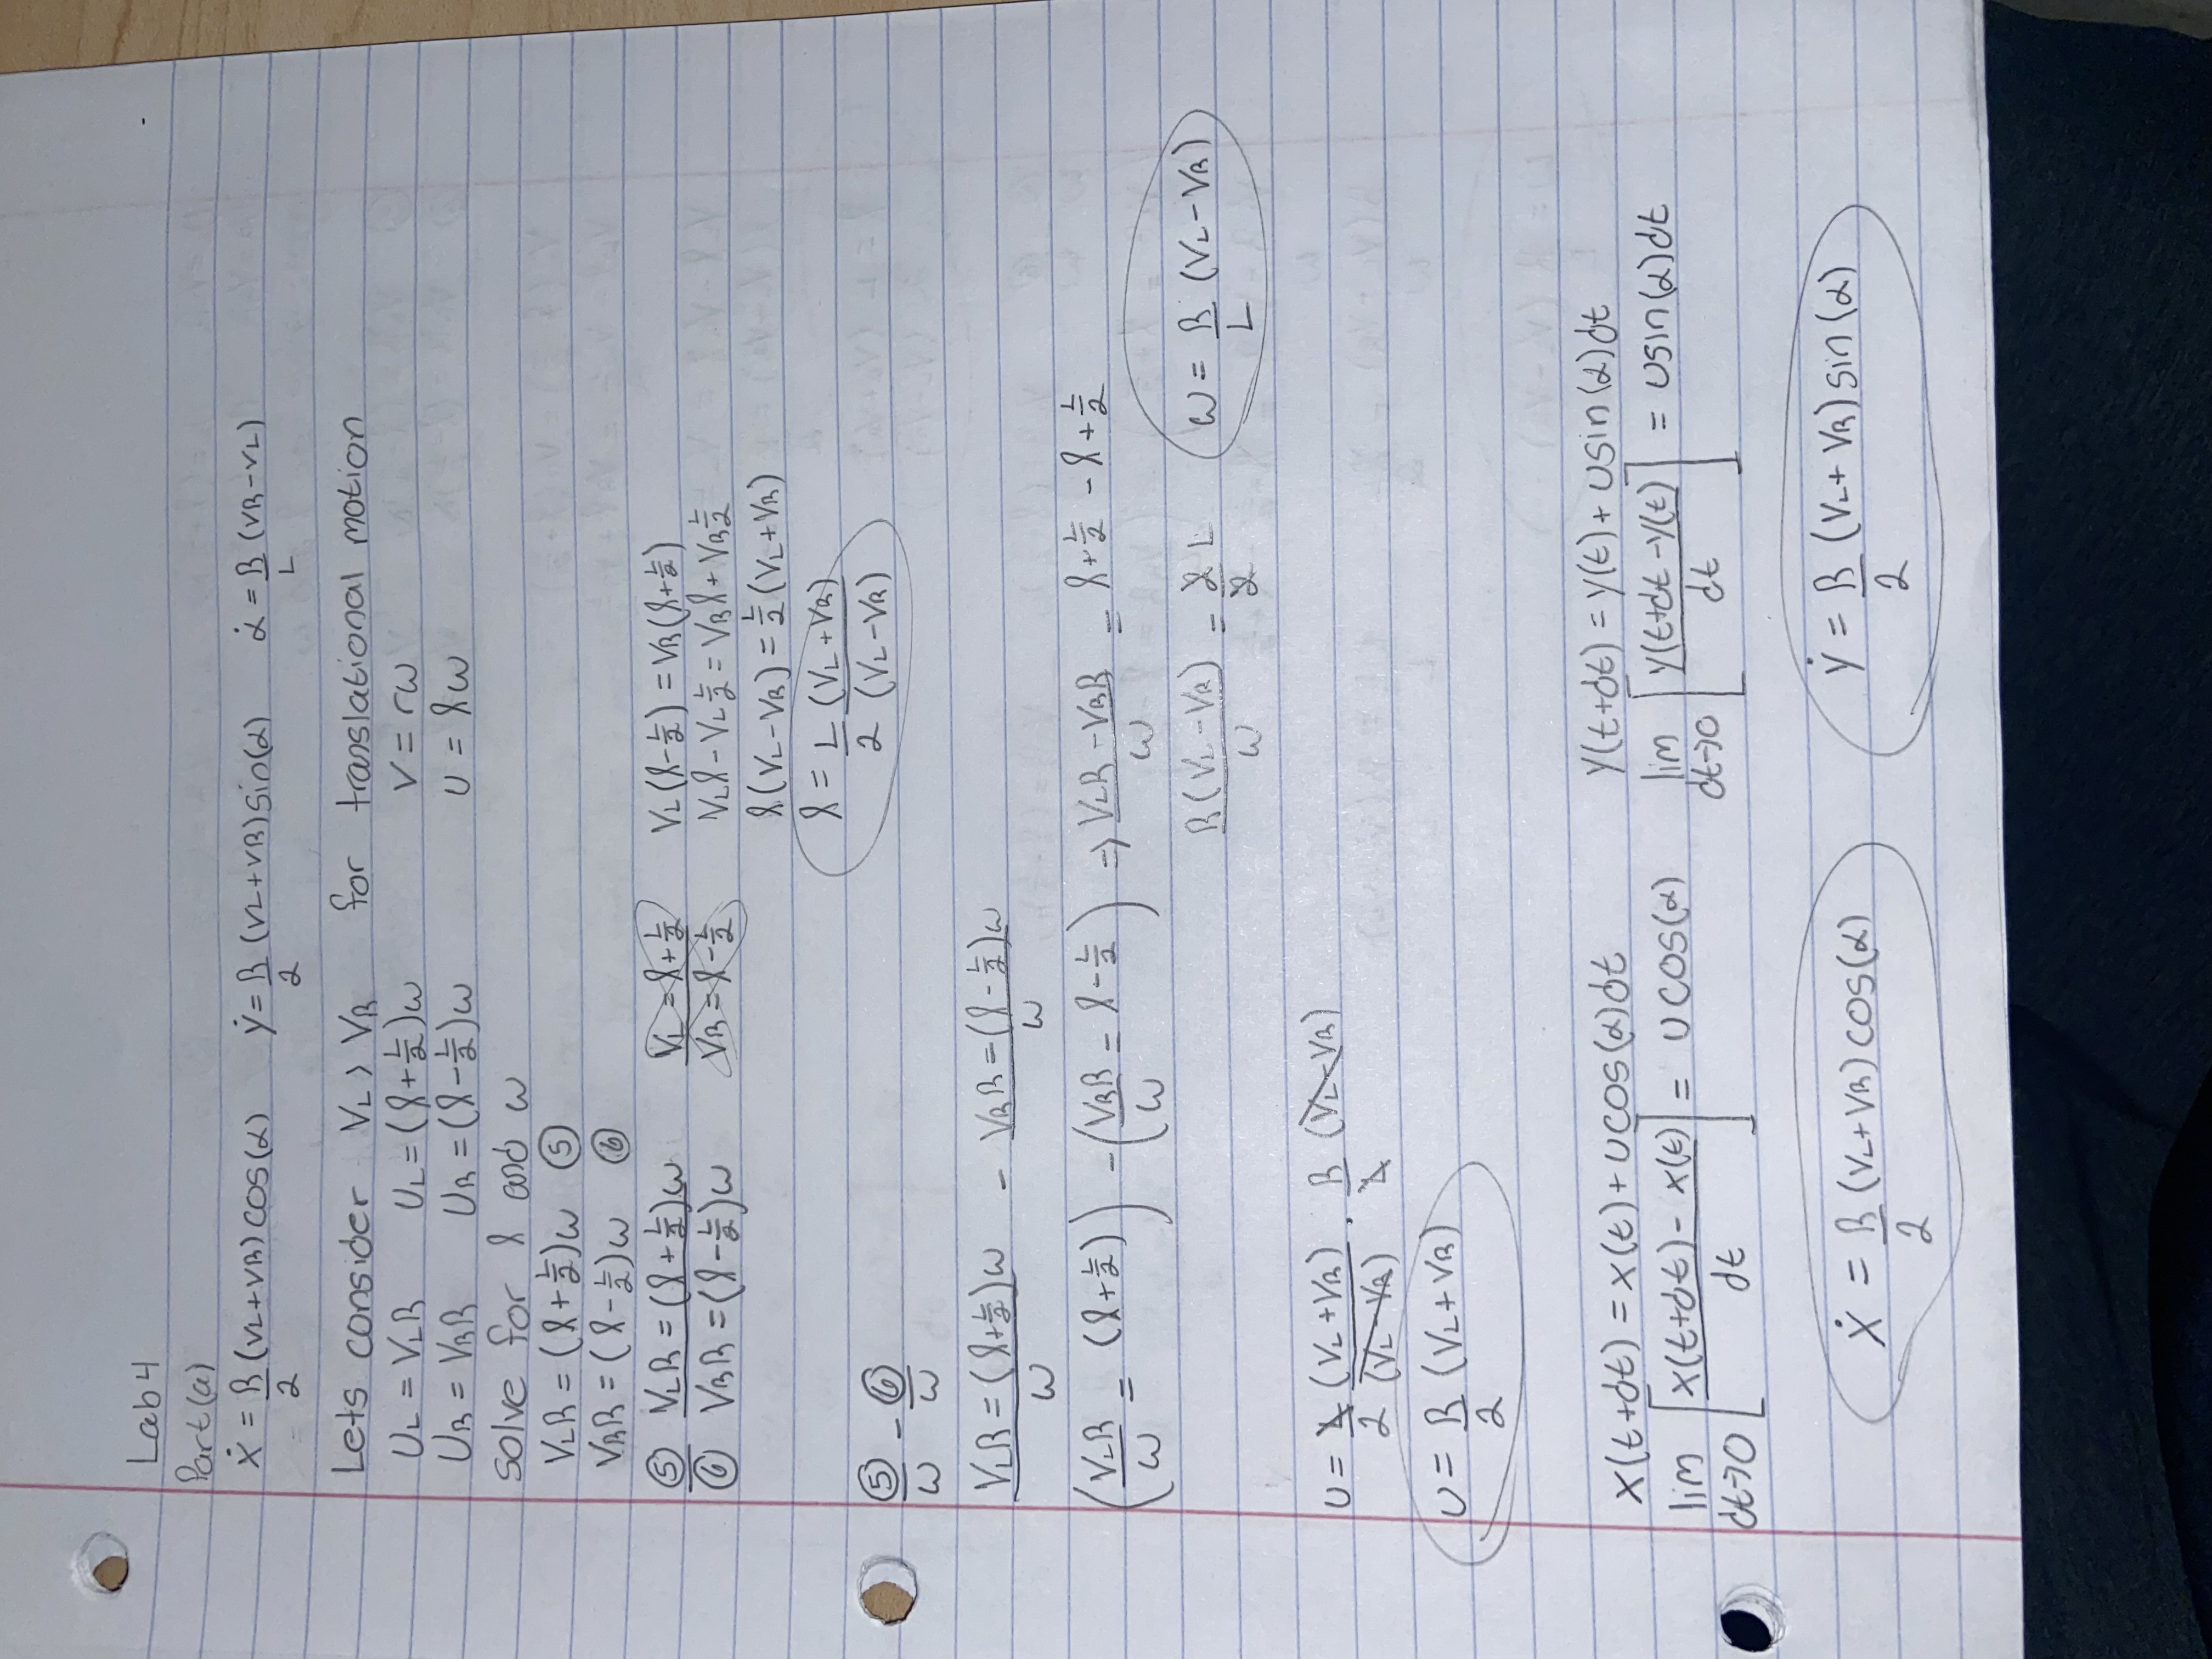 Lab 4
Part (a)
ẋ = R/2 (VL+VR) cos(α)   ẏ = R/2 (VL+VR) sin(α)   α̇ = R/L (VR-VL)
Lets consider VL > VR for translational motion
UL = VLR   UL = (l + L/2)ω   V = rω
UR = VRR   UR = (l - L/2)ω   U = lω
solve for l and ω
VLR = (l + L/2)ω ⑤
VRR = (l - L/2)ω ⑥
⑤ VLR = (l + L/2)ω   VL = l + L/2   VL(l - L/2) = VR(l + L/2)
⑥ VRR = (l - L/2)ω   VR = l - L/2   VLl - VL L/2 = VRl + VR L/2
l(VL - VR) = L/2 (VL + VR)
l = L/2 (VL + VR)/(VL - VR)
⑤/ω - ⑥/ω
VLR = (l + L/2)ω / ω - VRR = (l - L/2)ω / ω
(VLR/ω = (l + L/2)) - (VRR/ω = l - L/2) ⇒ VLR - VRR / ω = l + L/2 - l + L/2
R(VL - VR)/ω = 2/2 L   ω = R/L (VL - VR)
U = L/2 (VL + VR)/(VL - VR) · R/L (VL - VR)
U = R/2 (VL + VR)
x(t+dt) = x(t) + U cos(α)dt   y(t+dt) = y(t) + U sin(α)dt
lim dt→0 [x(t+dt) - x(t) / dt] = U cos(α)   lim dt→0 [y(t+dt - y(t) / dt] = U sin(α)dt
ẋ = R/2 (VL+VR) cos(α)   ẏ = R/2 (VL+VR) sin(α)